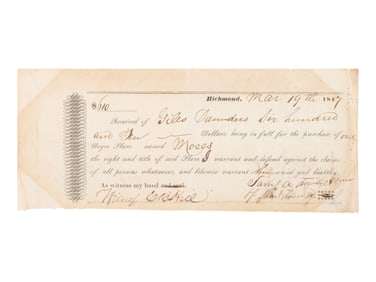 Richmond, Mar 19th 1847
$610
Received of Giles Saunders Six hundred
and Ten Dollars, being in full for the purchase of one
Negro Slave named Moses
the right and title of said Slave I warrant and defend against the claims
of all persons whatsoever, and likewise warrant him sound and healthy
As witness my hand and seal.
Saml A
Witness
of